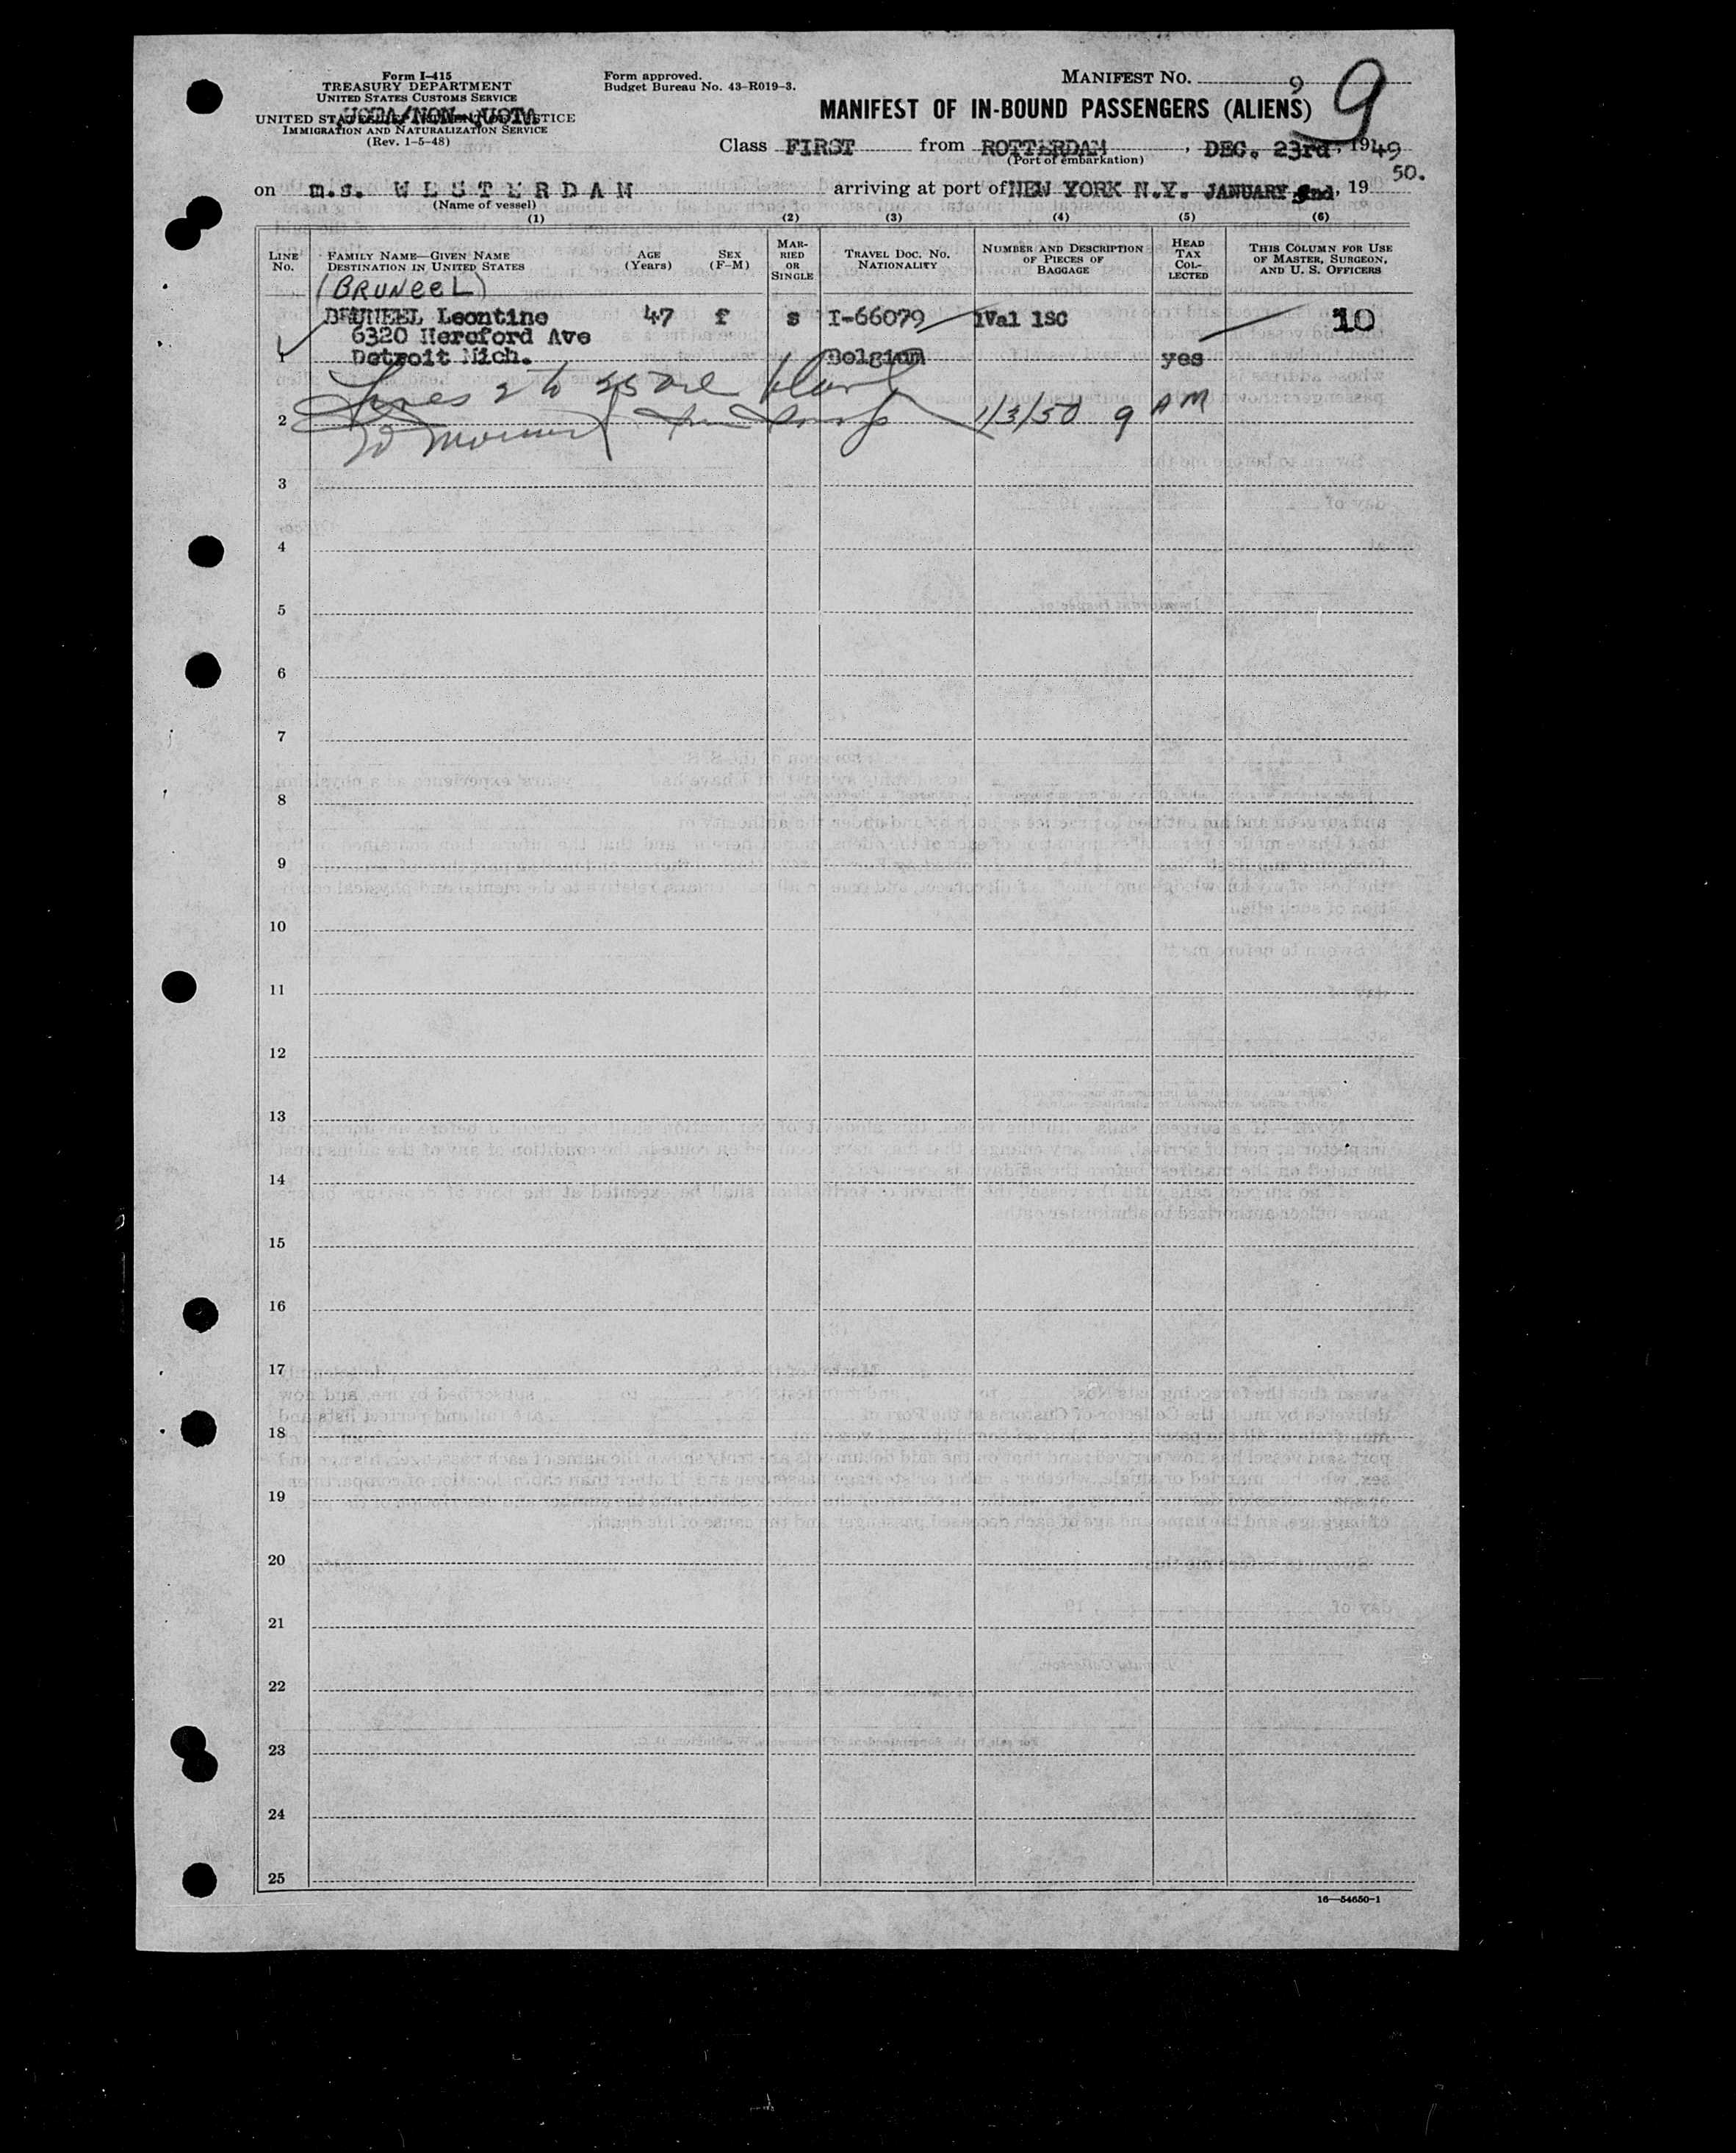 Form I-415
TREASURY DEPARTMENT
UNITED STATES CUSTOMS SERVICE
IMMIGRATION AND NATURALIZATION SERVICE
(Rev. 1-5-48)
Form approved.
Budget Bureau No. 43-R019-3.
MANIFEST NO. 9
9
MANIFEST OF IN-BOUND PASSENGERS (ALIENS)
Class FIRST from ROTTERDAM, DEC. 23rd, 1949
(Port of embarkation)
on m.s. WESTERDAM arriving at port of NEW YORK N.Y. JANUARY 19 50.
(Name of vessel)
(1) (2) (3) (4) (5) (6)
LINE No. FAMILY NAME—GIVEN NAME DESTINATION IN UNITED STATES AGE (Years) SEX (F-M) MARRIED OR SINGLE TRAVEL DOC. NO. NATIONALITY NUMBER AND DESCRIPTION OF PIECES OF BAGGAGE HEAD TAX COLLECTED THIS COLUMN FOR USE OF MASTER, SURGEON, AND U. S. OFFICERS
(BRUNEEL)
BRUNEEL Leontine 47 f s I-66079 1Val 1SC 10
6320 Hereford Ave
1 Detroit Mich. Belgium yes
Lines 2 to 25
2 1/3/50 9 AM
3
4
5
6
7
8
9
10
11
12
13
14
15
16
17
18
19
20
21
22
23
24
25
16—54650-1